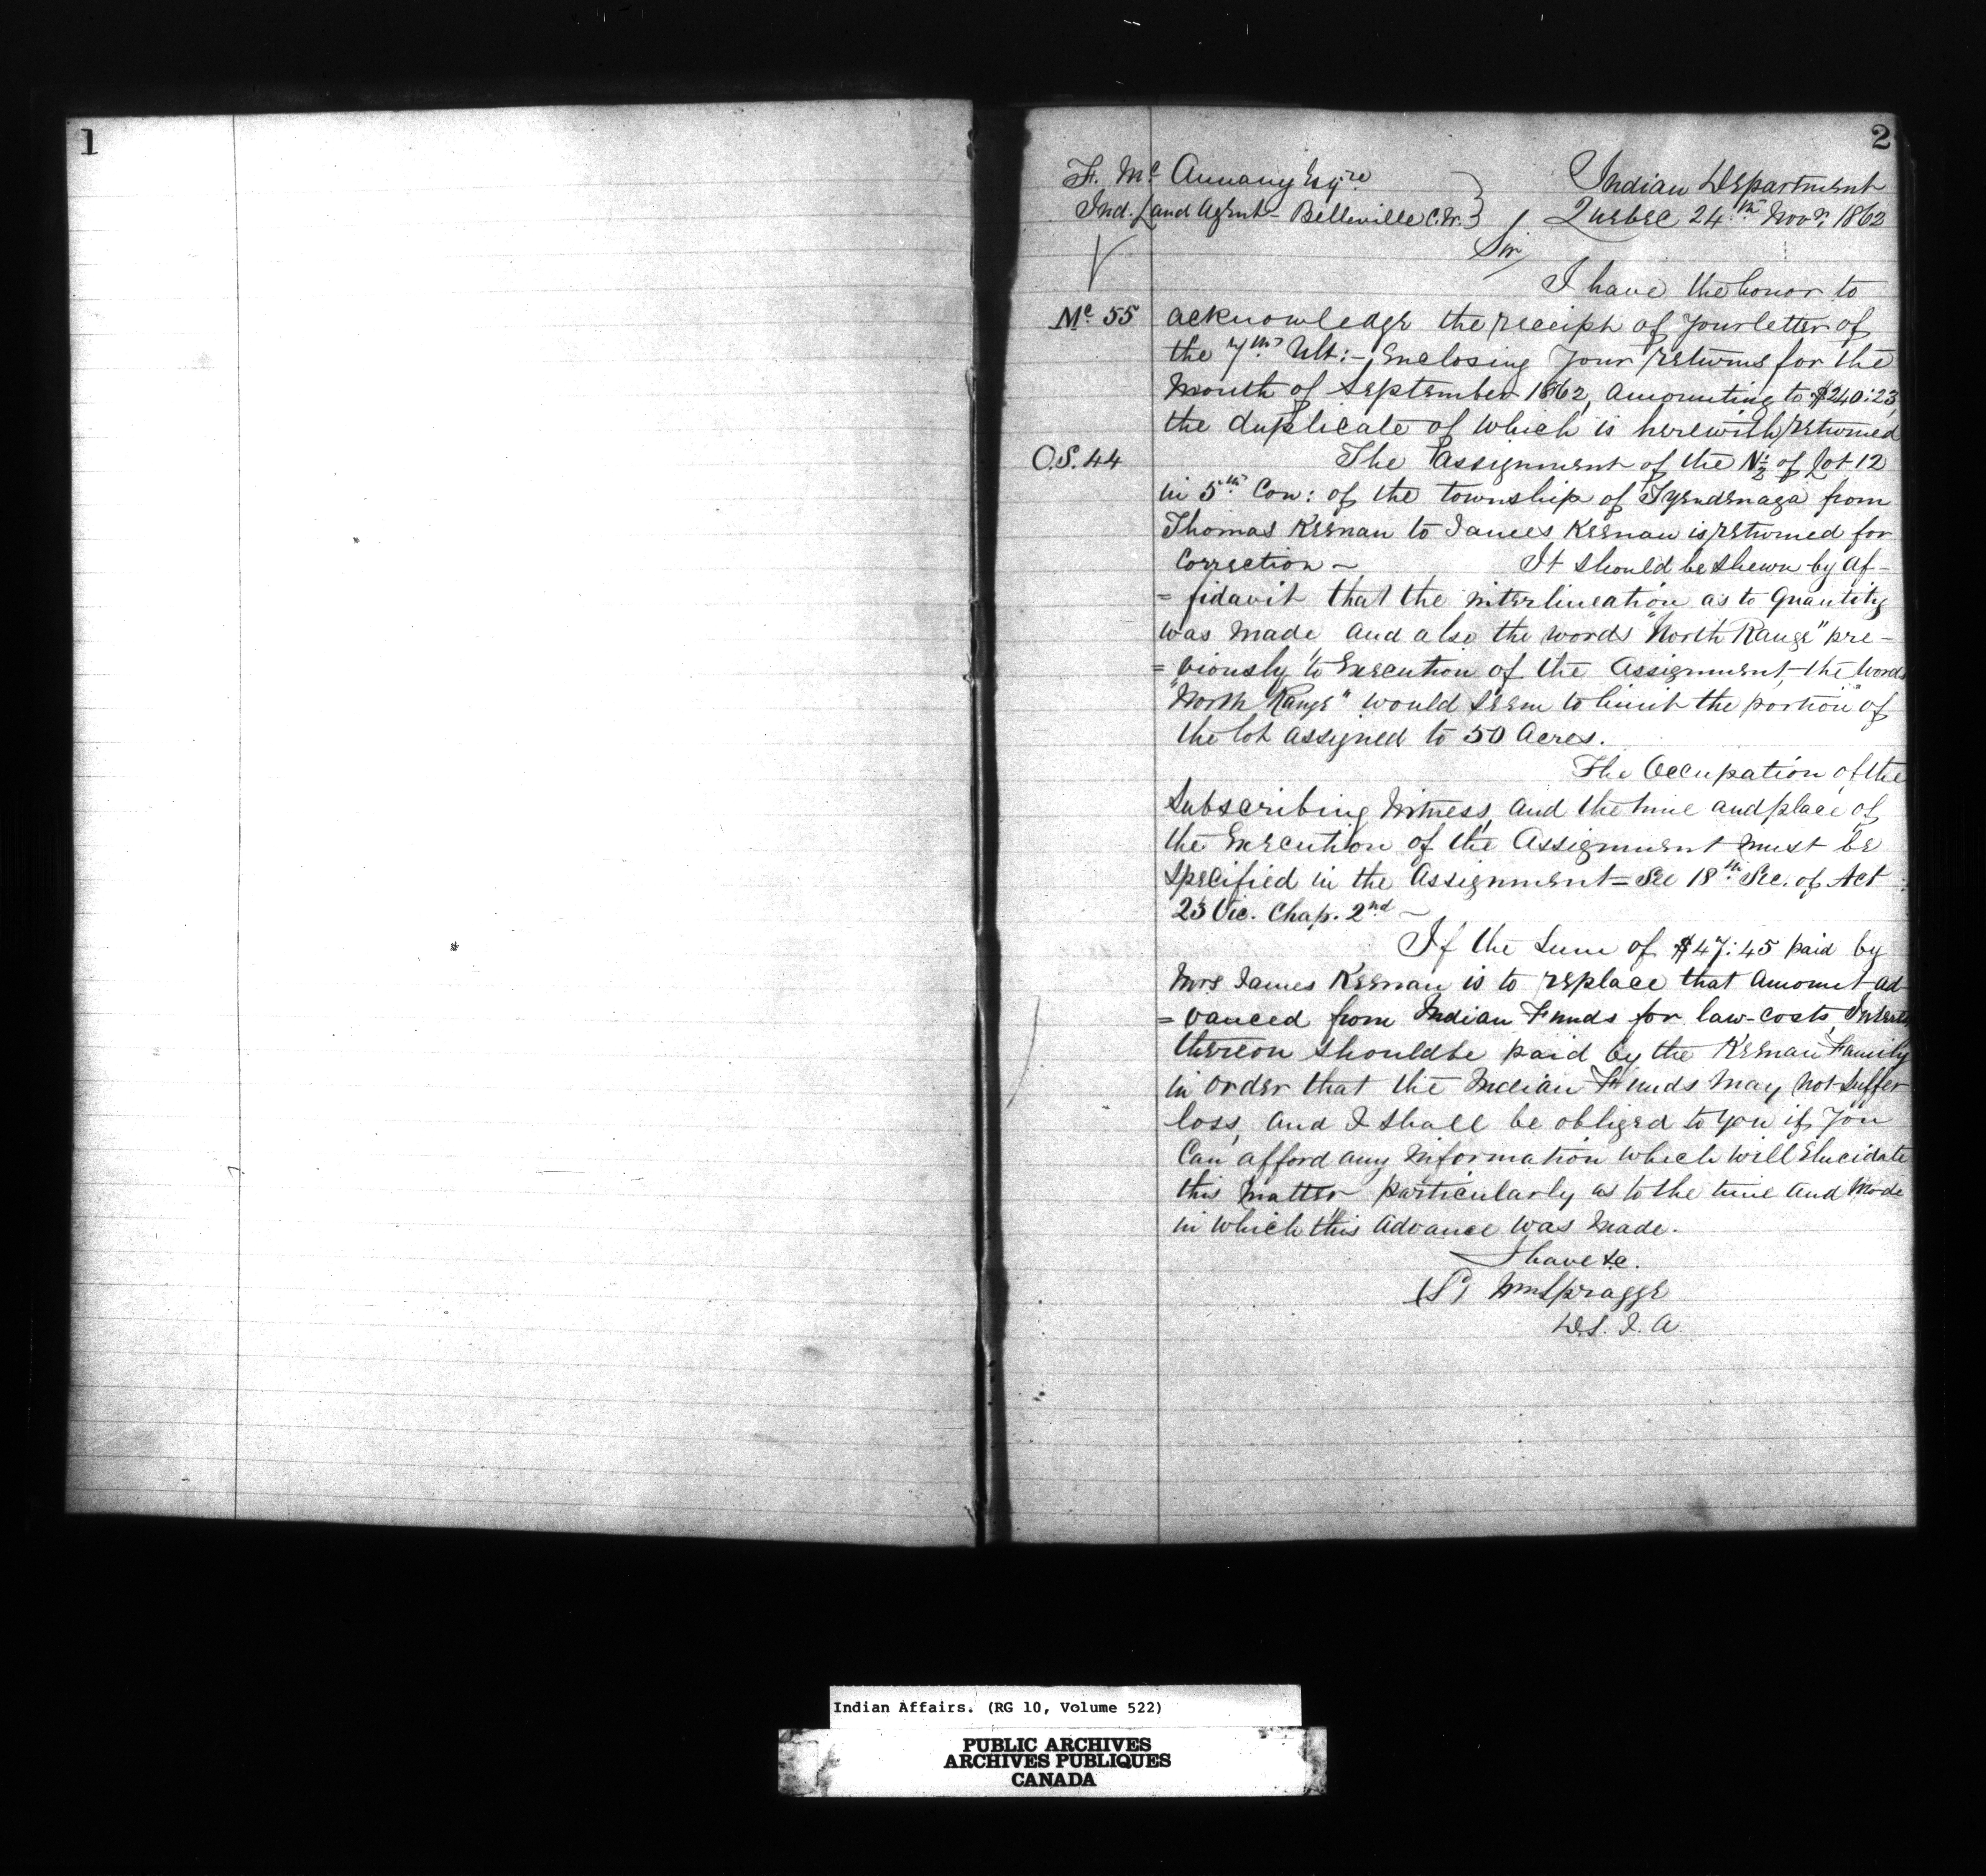 1
2
F. Mc Annany Esqre
Ind. Land Agent - Belleville C.W.
Indian Department
Quebec 24th Novr. 1862
Sir,
I have the honor to
Mc. 55 acknowledge the receipt of your letter of
the 7th Ult:- Enclosing Your returns for the
Month of September 1862, amounting to $240:23,
the duplicate of which is herewith returned
O.S. 44 The Assignment of the N ½ of Lot 12
in 5th Con: of the township of Tyendenaga from
Thomas Keenan to James Keenan is returned for
Correction ~ It should be shewn by Af-
= fidavit that the interlineation as to Quantity
was made and also the words "North Range" pre-
= viously to Execution of the Assignment, the words
"North Range" would seem to limit the portion of
the lot assigned to 50 Acres.
The Occupation of the
Subscribing Witness, and the time and place of
the Execution of the Assignment must be
Specified in the Assignment = See 18th Sec. of Act
23 Vic. Chap. 2nd ~
If the Sum of $47:45 paid by
Mrs James Keenan is to replace that amount ad-
= vanced from Indian Funds for law-costs, Interest
thereon should be paid by the Keenan Family
in order that the Indian Funds may not suffer
loss, and I shall be obliged to you if you
Can afford any information which will Elucidate
this matter particularly as to the time and Mode
in which this advance was made.
I have &c.
(S) Wm Spragge
D.S.I.A.
Indian Affairs. (RG 10, Volume 522)
PUBLIC ARCHIVES
ARCHIVES PUBLIQUES
CANADA